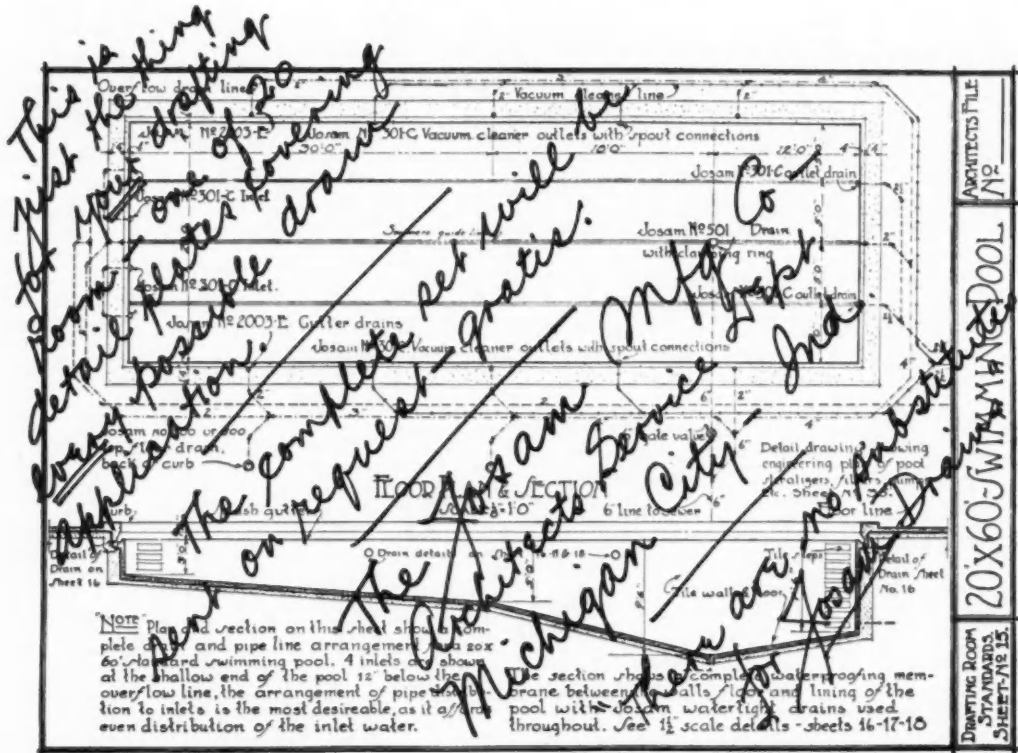 This is
just the thing
for your drafting
room — one of 20
detail plates covering
every possible drain
application.
The complete set will be
sent on request — gratis.
The Josam Mfg Co —
Architects Service Dept
Michigan City — Ind.
"There are no substitutes
for Josam Drains"
Overflow drain line
2" Vacuum cleaner line
Josam Nº 2003-E
Josam Nº 301-C Vacuum cleaner outlets with spout connections
30'0" 18'0" 12'0"
Josam Nº 301-C outlet drain
Josam Nº 301-C Inlet
Swimmers guide
Josam Nº 501 Drain
with clamping ring
Josam Nº 301-C Inlet.
C outlet drain
Josam Nº 2003-E Gutter drains
Josam Vacuum cleaner outlets with spout connections
Josam
drain,
back of curb
Gate valve
Detail drawing showing
engineering plan of pool
FLOOR PLAN & SECTION
6" line to sewer
Detail of
Drain on
Sheet 16
Drain details on
Tile steps
Tile walls & floor
Detail of
Drain Sheet
No. 16
"NOTE" Plan and section on this sheet show a complete
drain and pipe line arrangement for a 20x
60' standard swimming pool. 4 inlets are shown
at the shallow end of the pool 12" below the
overflow line, the arrangement of pipe distribution
to inlets is the most desireable, as it affords
even distribution of the inlet water.
The section shows complete waterproofing membrane
between walls floor and lining of the
pool with Josam watertight drains used
throughout. See 1½" scale details - sheets 16-17-18
ARCHITECTS FILE
Nº
20'X60'~SWIMMING POOL
DRAFTING ROOM
STANDARDS.
SHEET-Nº 15.